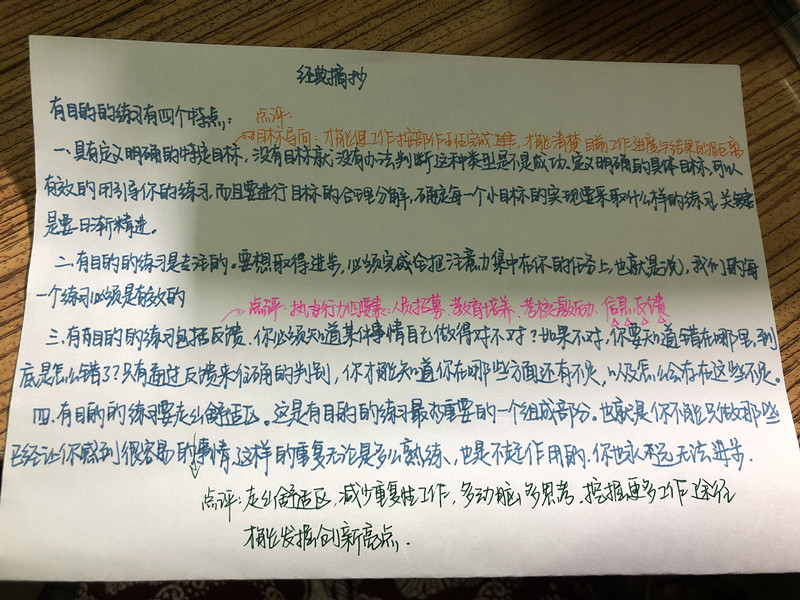 经典摘抄
有目的的练习有四个特点:
点评:
目标导向: 才能但工作按部作 完成 , 才能清楚目前工作进度与结果的 距离
一、具有定义明确的特定目标, 没有目标就没有办法判断这种类型是不是成功、定义明确的具体目标, 可以
有效的用引导你的练习, 而且要进行目标的合理分解, 确定每一个小目标的实现要采取什么样的练习, 关键
是要日渐精进。
二、有目的的练习是专注的。要想取得进步, 必须完成会把注意力集中在你的任务上, 也就是说, 我们的每
一个练习必须是有效的
点评: 执行力四要素: 人员招募、教育培养、考核激励、信息反馈
三、有目的的练习包括反馈、你必须知道某件事情自己做得对不对? 如果不对, 你要知道错在哪里, 到
底是怎么错了? 只有通过反馈来 准确的判别, 你才能知道你在哪些方面还有不足, 以及怎么会存在这些不足。
四、有目的的练习要走出舒适区。这是有目的的练习最为重要的一个组成部分。也就是你不能只做那些
已经让你感到很容易的事情, 这样的重复无论是多么熟练、也是不起作用的、你也永远无法进步.
点评: 走出舒适区, 减少重复性工作, 多动脑、多思考、挖掘更多工作途径
才能发掘创新亮点.